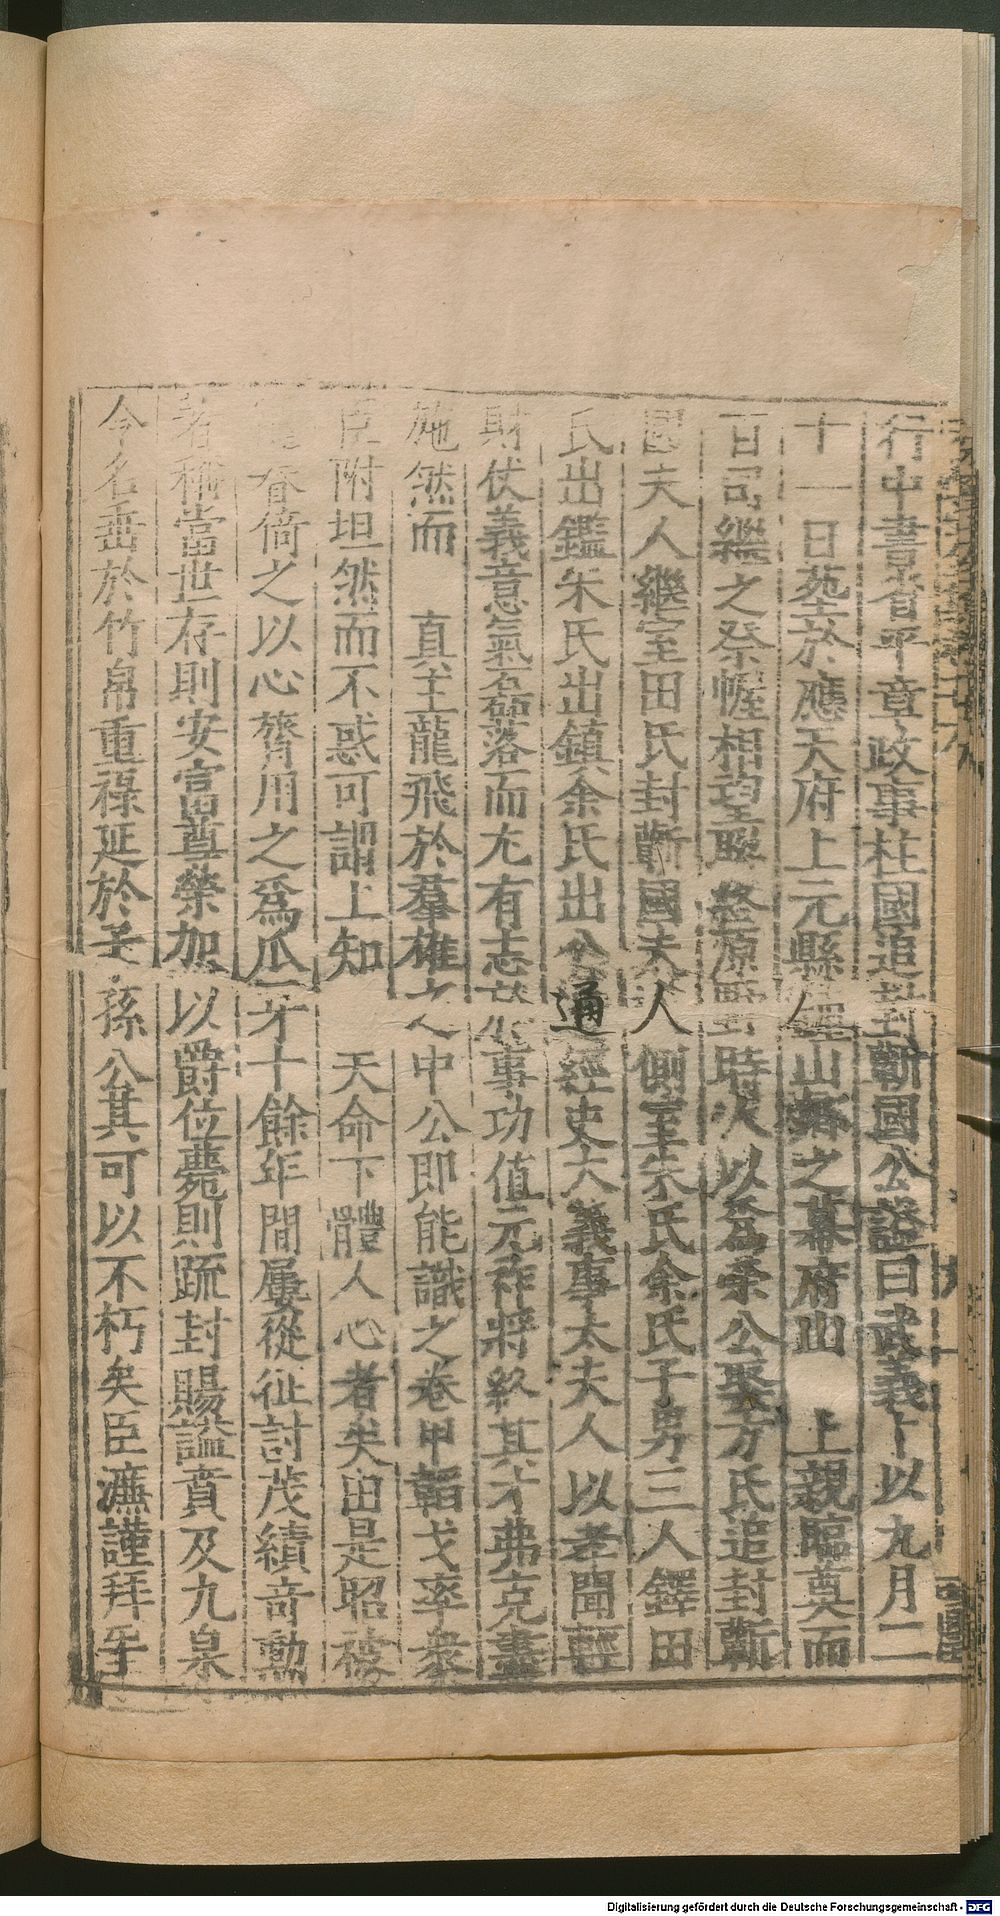 行中書省平章政事柱國追封蘄國公諡曰武義卜以九月二
十一日塟於應天府上元縣鍾山之幕府山 上親臨奠而
百司繼之祭幄相望原野時以爲榮公娶方氏追封蘄
國夫人繼室田氏封蘄國夫人側室朱氏余氏子男三人鐸田
氏出鑑朱氏出鎮余氏出公通經史大義事太夫人以孝聞輕
財仗義意氣磊落而尤有志於事功值元祚將終其才弗克盡
施然而 真主龍飛於羣雄之中公即能識之卷甲韜戈率衆
臣附坦然而不惑可謂上知 天命下體人心者矣由是昭被
眷倚之以心膂用之爲爪牙十餘年間屢從征討茂績奇勳
著稱當世存則安富尊榮加以爵位薨則疏封賜諡賁及九泉
今名垂於竹帛重祿延於子孫公其可以不朽矣臣濂謹拜手
Digitalisierung gefördert durch die Deutsche Forschungsgemeinschaft - DFG